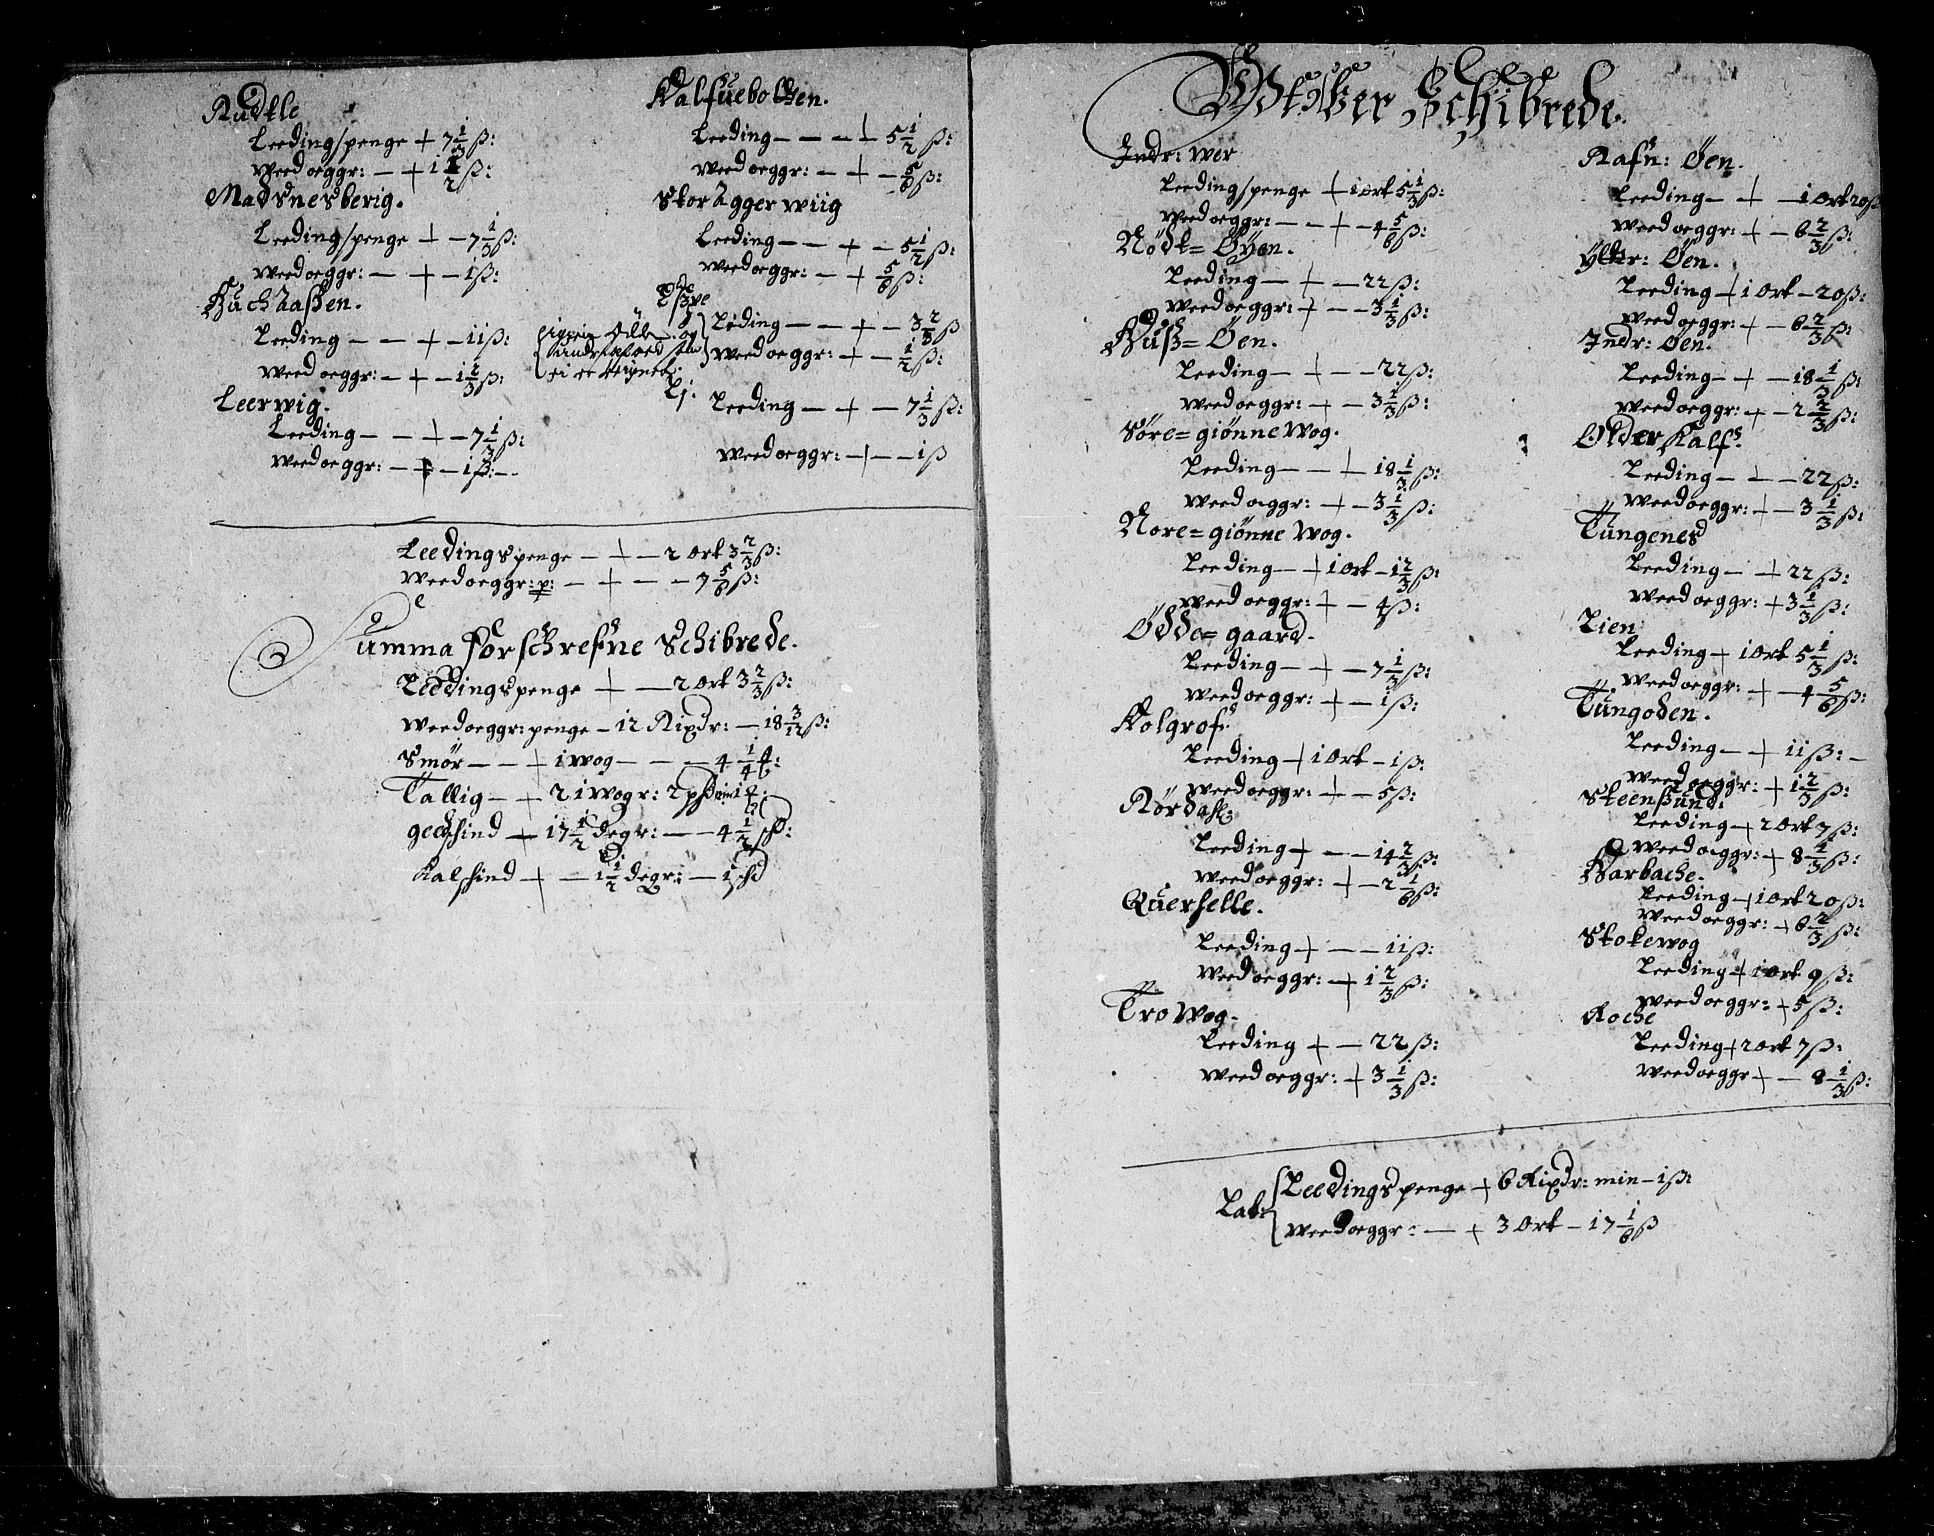 Rudtle
Leedingspenge + 7 1/3 ß:
Weedoeggr: — + 1 1/2 ß:
Madsnesberig.
Leedingspenge + — 7 1/3 ß:
Weedoeggr: — + — 1 ß:
Buchaassen.
Leeding — — + — 11 ß:
Weedoeggr: — + — 1 2/3 ß:
Leerwig.
Leeding — — + — 7 1/3 ß:
Weedoeggr: — + — 1 ß: —
Kalfuebolten.
Leeding — — — + 5 1/2 ß:
Weedoeggr: — + — 5/6 ß:
Stor Agger wiig
Leeding — — + — 5 1/2 ß:
Weedoeggr: — + 5/6 ß:
Leding — — + — 3 2/3 ß
Weedoeggr: — + — 1/2 ß:
ej:
Leeding — + — 7 1/3 ß:
Weedoeggr: — + — — 1 ß
Leedingspenge — + — 2 Ort 3 2/3 ß:
Weedoeggr: p: — + — — 7 5/6 ß:
Summa forschrefne Schibrede.
Leedingspenge + — 2 Ort 3 2/3 ß:
Weedoeggr: penge — 12 Rixdr: — 18 3/12 ß:
Smør — — + 1 wog — — — 4 1/4
Tallig — + 21 wogr: 2 pd min 1
geedschind + 17 1/2 degr: — — 4 1/2 schd:
Kalschind + — 1 1/2 degr: — 1 schd
Wtwer Schibrede.
Indr: wer
Leedingspenge + 1 Ort 5 1/3 ß:
Weedoeggr: — — + — 4 5/6 ß:
Nödt= Öyen.
Leeding — + — 22 ß:
Weedoeggr: + — — 3 1/3 ß:
Buß= Öen.
Leeding — + — — 22 ß:
Weedoeggr: — + — 3 1/3 ß:
Søre= giönne Wog.
Leeding — — + 18 1/3 ß:
Weedoeggr: — + — 3 1/3 ß:
Nore= giönne Wog.
Leeding — + 1 Ort — 1 2/3 ß:
Weedoeggr: + — 4 ß:
Ödde= gaard.
Leeding — + — 7 1/3 ß:
Weedoeggr: — + — 1 ß:
Kolgrof:
Leeding + 1 Ort — 1 ß:
Weedoeggr: + — 5 ß:
Nördahl:
Leeding + — — 14 2/3 ß:
Weedoeggr: — + — 2 1/6 ß:
Querhelle.
Leeding + — — 11 ß:
Weedoeggr: — + 1 2/3 ß:
Tro Wog.
Leeding + — 22 ß:
Weedoeggr: + 3 1/3 ß:
Rafn: Öen.
Leeding — + — 1 Ort 20 ß
Weedoeggr: + — 6 2/3 ß:
Ytter: Öen.
Leeding + 1 Ort — 20 ß:
Weedoeggr: + — 6 2/3 ß:
Indr: Öen.
Leeding — + — 18 1/3 ß:
Weedoeggr: + — 2 2/3 ß:
Older Kalf:
Leeding — — — 22 ß:
Weedoeggr: + — 3 1/3 ß:
Tungenes
Leeding — + 22 ß:
Weedoeggr: + 3 1/3 ß:
Lien
Leeding + 1 Ort 5 1/3 ß:
Weedoeggr: — + — 4 5/6 ß:
Tungoden.
Leeding — + 11 ß: —
Weedoeggr: + 1 2/3 ß:
Steensund:
Leeding + 2 Ort 7 ß:
Weedoeggr: + 8 1/3 ß:
Barbache.
Leeding + 1 Ort 20 ß:
Weedoeggr: + 6 2/3 ß:
Stokewog
Leeding + 1 Ort 9 ß:
Weedoeggr: + 5 ß:
Roche
Leeding + 2 Ort 7 ß:
Weedoeggr + — 8 1/3 ß:
Lat:
Leedingspenge + 6 Rixdr: min — 1 ß:
Weedoeggr: — + 3 Ort — 17 1/6 ß